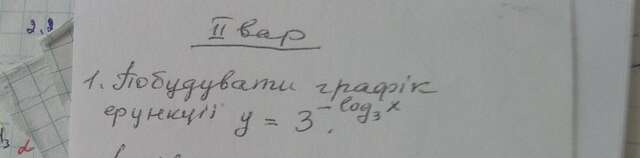 2.2
II вар
1. Побудувати графік
функції y = 3^{-log_3 x}.